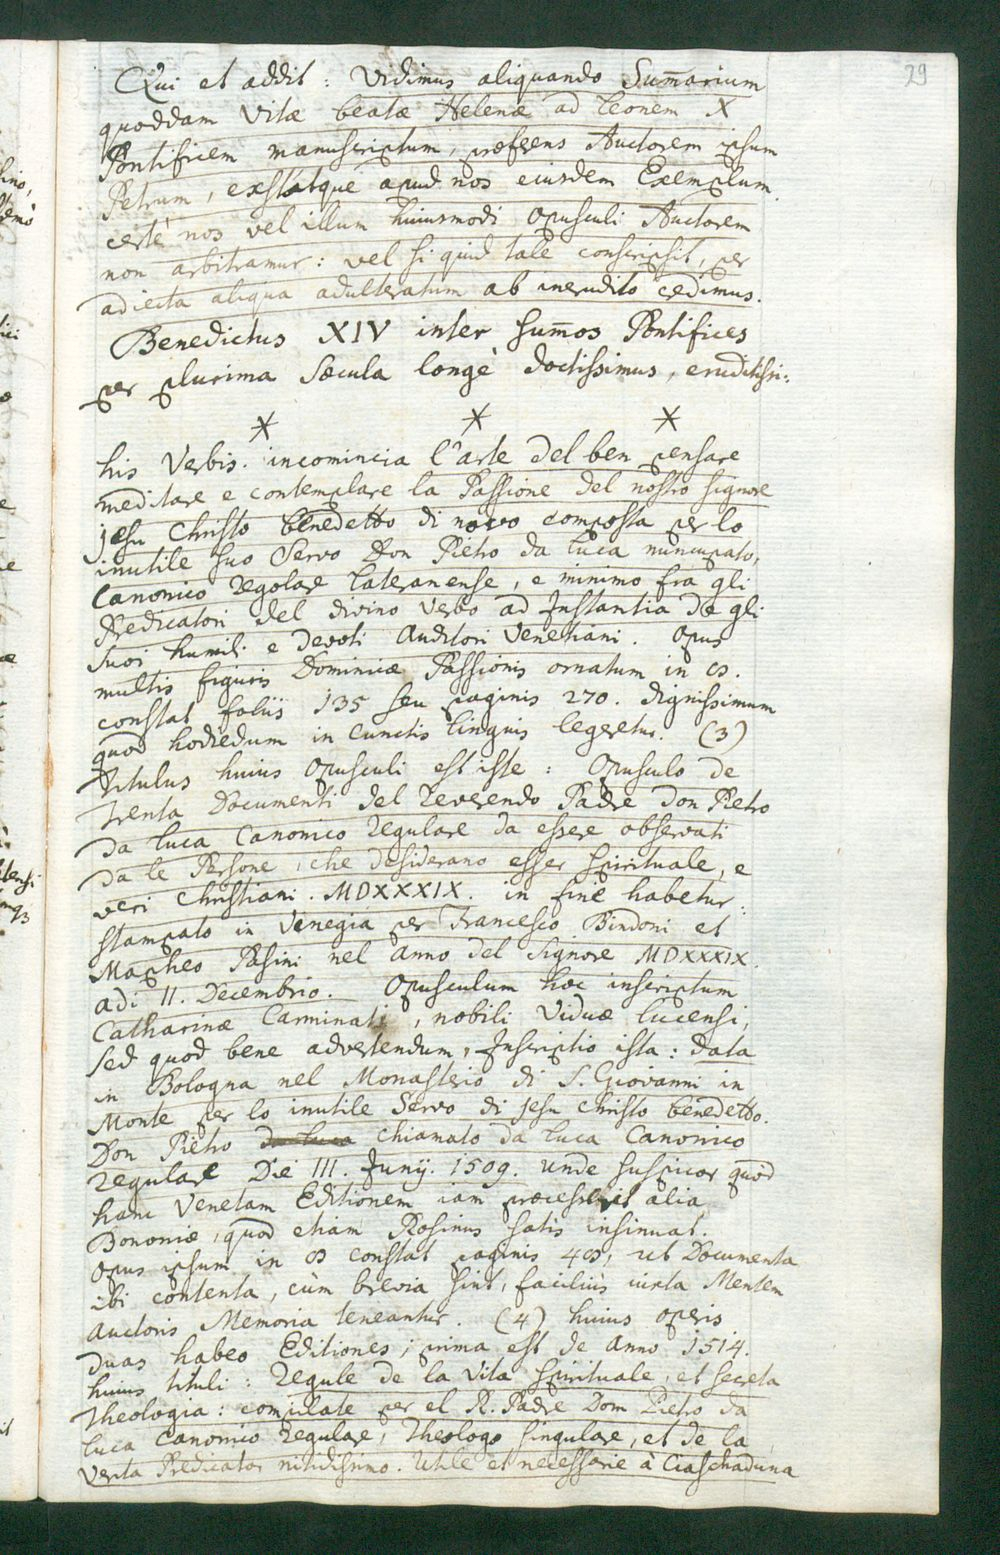 29
Qui et addit: Vidimus aliquando Sum̄arium
quoddam Vitæ beatæ Helenæ ad Leonem X
Pontificem manuscriptum, præferens Auctorem ipsum
Petrum, exstatque apud nos eiusdem Exemplum.
certè nos vel illum huiusmodi opusculi Auctorem
non arbitramur: vel si quid tale conscripsit, per
adiecta aliqua adulteratum ab inerudito credimus.
Benedictus XIV inter sum̄os Pontifices
per plurima Sæcula longè doctissimus, eruditissi:
* * *
his Verbis. incomincia l'arte del ben pensare
meditare e contemplare la Passione del nostro signore
jesu Christo benedetto di novo composta per lo
inutile suo Servo Don Pietro da Luca nuncupato,
Canonico regolare Lateranense, e minimo fra gli
Predicatori del divino Verbo ad Instantia de gli
suoi humili e devoti Auditori Venetiani. Opus
multis figuris Dominicæ Passionis ornatum in 8.
constat foliis 135 seu paginis 270. dignissimum
quod hodiedum in cunctis linguis legeretur. (3)
Titulus huius Opusculi est iste: Opusculo de
trenta Documenti del Reverendo Padre Don Pietro
da Luca Canonico Regulare da essere observati
da le Persone, che desiderano esser spirituale, e
veri Christiani. MDXXXIX. in fine habetur:
stampato in Venegia per Francesco Bindoni et
Mapheo Pasini nel Anno del Signore MDXXXIX.
adi 11. Decembrio. Opusculum hoc inscriptum
Catharinæ Carminati, nobili Viduæ Lucensi,
sed quod bene advertendum, Inscriptio ista: data
in Bologna nel Monasterio di S. Giovanni in
Monte per lo inutile Servo di jesu Christo benedetto.
Don Pietro da Luca chiamato da Luca Canonico
regulare Die III. Junij. 1509. unde suspicor quòd
hanc Venetam Editionem iam præcesserit alia
Bononiæ, quod etiam Rosinus satis insinuat.
Opus ipsum in 8 constat paginis 48, ut Documenta
ibi contenta, cùm brevia sint, faciliùs iuxta Mentem
Auctoris Memoria teneantur. (4) huius operis
duas habeo Editiones; prima est de Anno 1514.
huius tituli: Regule de la Vita spirituale, et secreta
Theologia: compilate per el R. Padre Dom Pietro da
Luca Canonico regulare, Theologo singulare, et de la
Verita Predicator nitidissimo. Utile et necessarie à Ciaschaduna